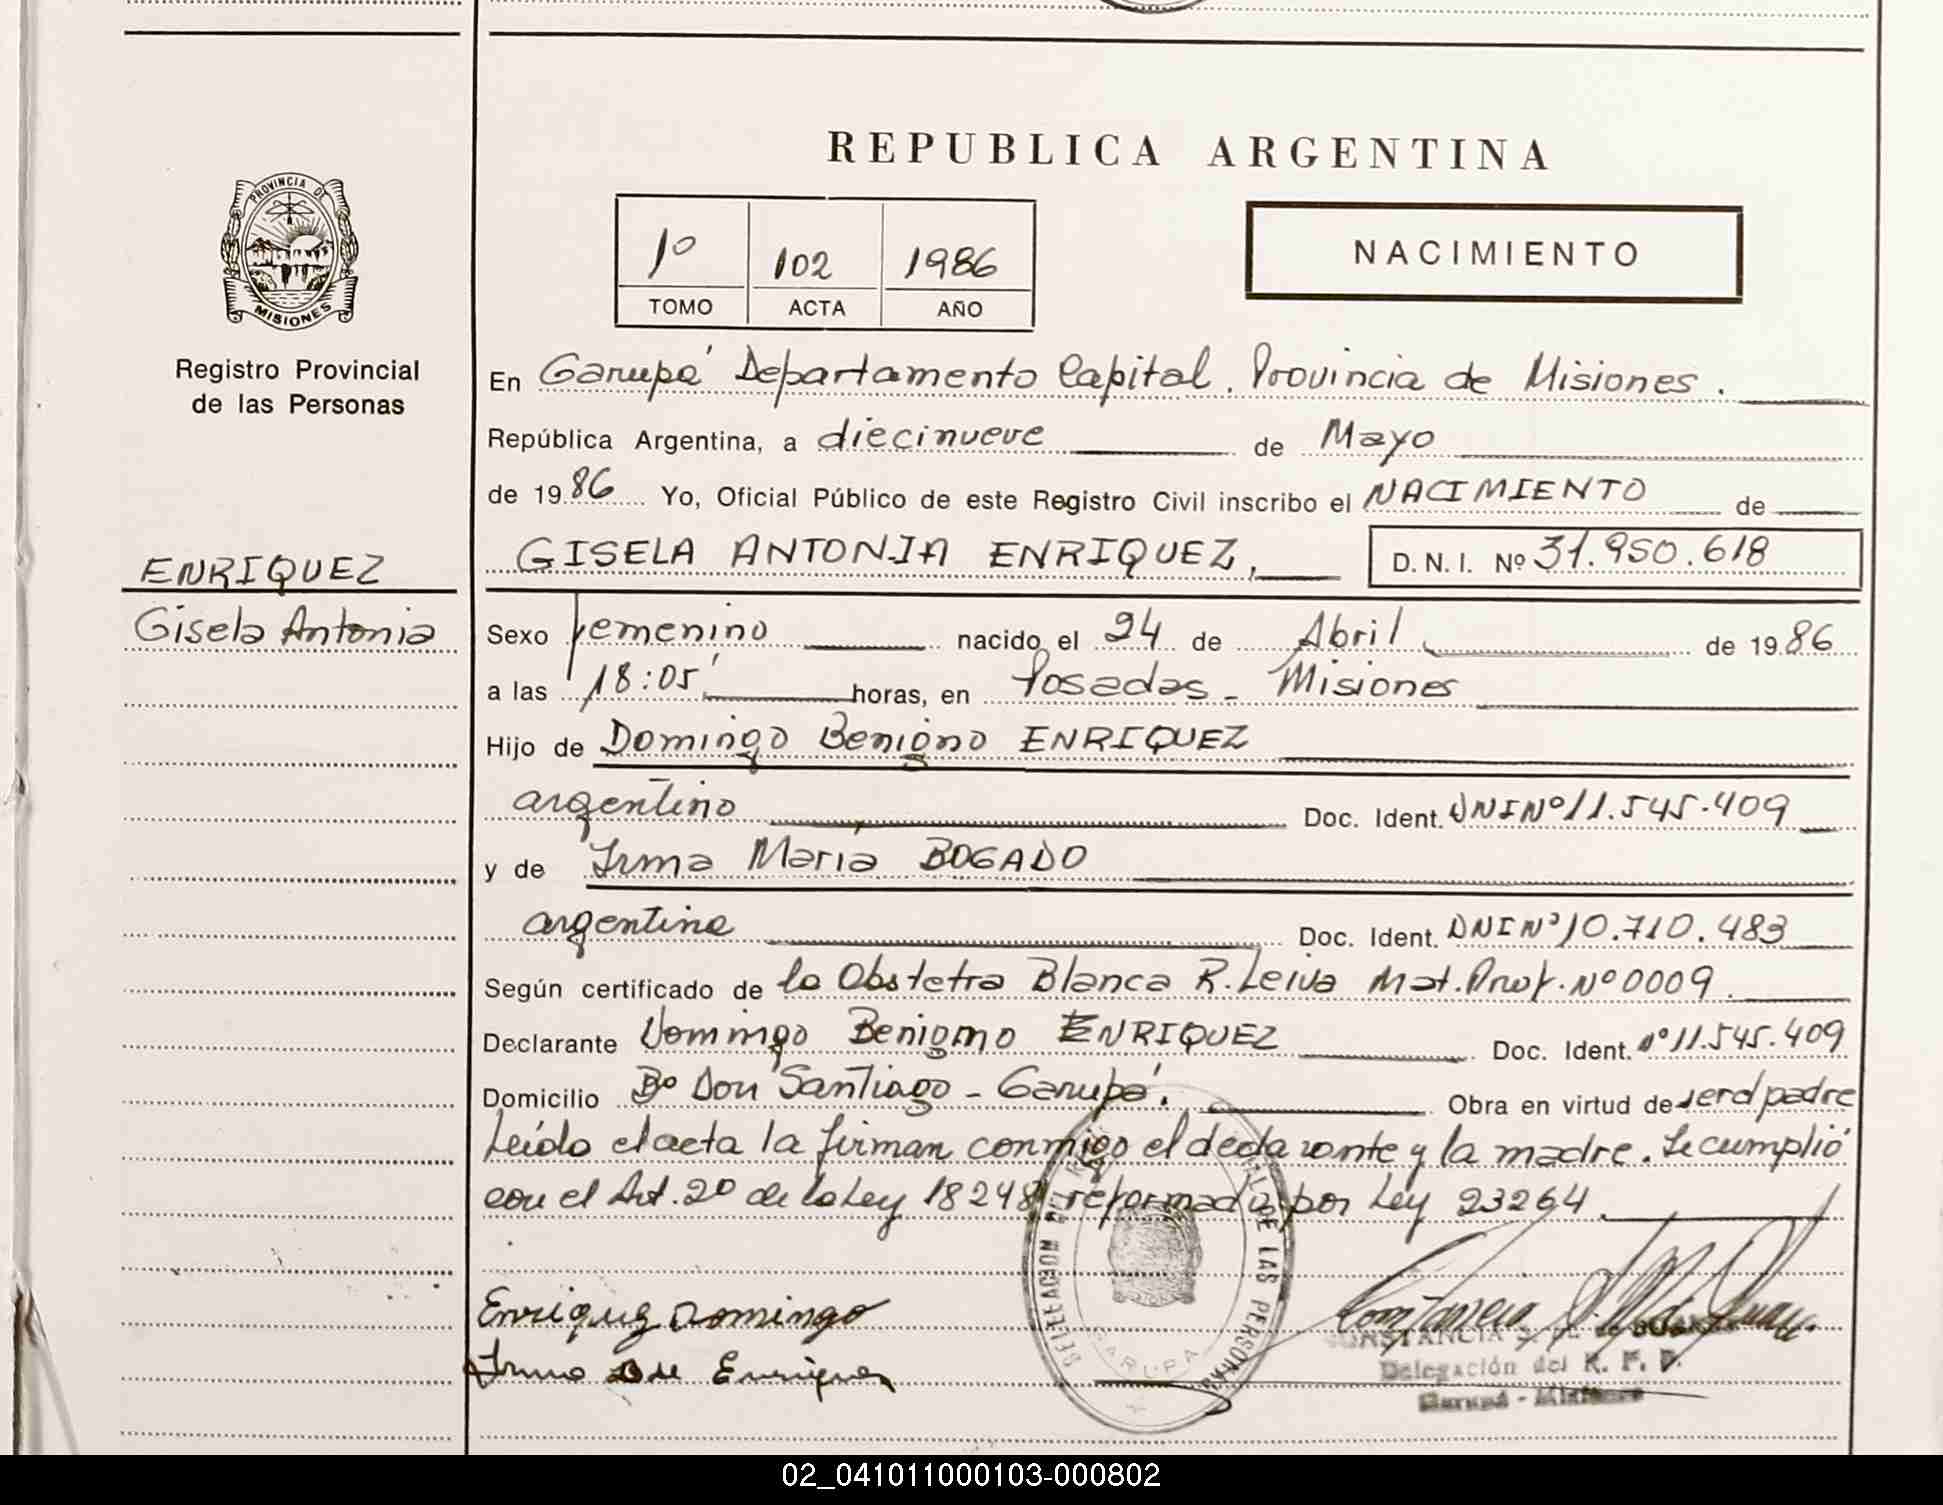 REPUBLICA ARGENTINA
PROVINCIA DE
MISIONES
Registro Provincial
de las Personas
1º 102 1986
TOMO ACTA AÑO
NACIMIENTO
En Garupá Departamento Capital. Provincia de Misiones.
República Argentina, a diecinueve de Mayo
de 1986 Yo, Oficial Público de este Registro Civil inscribo el NACIMIENTO de
GISELA ANTONIA ENRIQUEZ, D.N.I. Nº 31.950.618
ENRIQUEZ
Gisela Antonia
Sexo femenino nacido el 24 de Abril de 1986
a las 18:05' horas, en Posadas - Misiones
Hijo de Domingo Benigno ENRIQUEZ
argentino Doc. Ident. DNI Nº 11.545.409
y de Irma María BOGADO
argentina Doc. Ident. DNI Nº 10.710.483
Según certificado de la Obstetra Blanca R. Leiva Mat. Prof. Nº 0009
Declarante Domingo Benigno ENRIQUEZ Doc. Ident. Nº 11.545.409
Domicilio Bº Don Santiago - Garupá. Obra en virtud de ser el padre
Leído el acta la firman conmigo el declarante y la madre. Se cumplió
con el Art. 2º de la Ley 18248 reformada por Ley 23264
Enriquez Domingo
Irma B de Enriquez
DELEGACION DEL DE LAS PERSONAS
GARUPA
CONSTANCIA
Delegación del R. P. P.
Garupá - Misiones
02_041011000103-000802